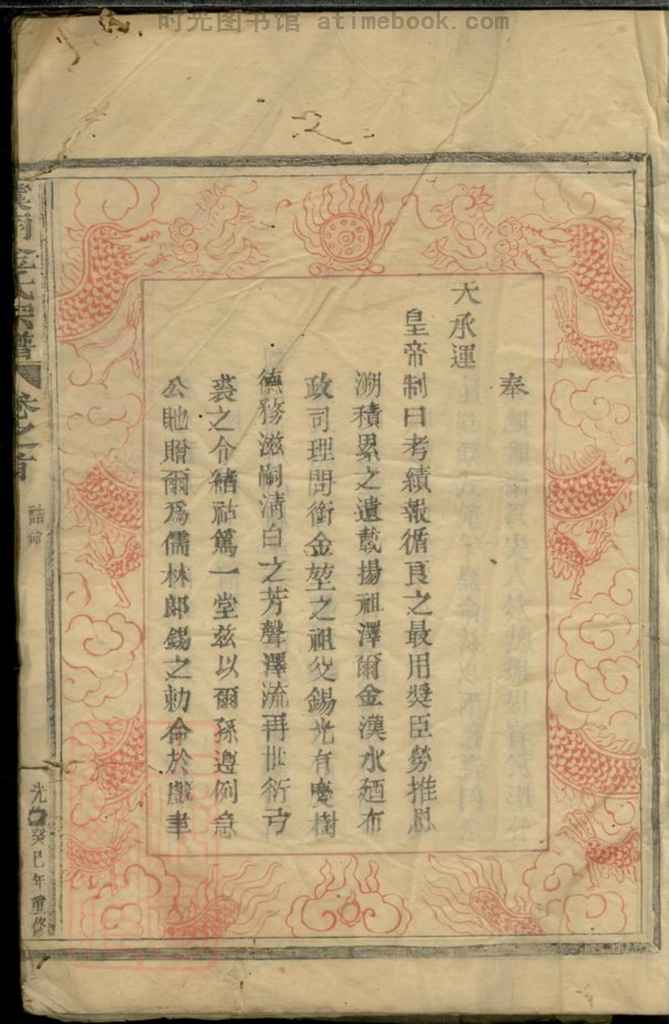 时光图书馆 atimebook.com
奉
天承運
皇帝制曰考績報循良之最用奬臣勞推恩
溯積累之遺載揚祖澤爾金漢水廼布
政司理問銜金堃之祖父錫光有慶樹
德務滋嗣清白之芳聲澤流再世衍弓
裘之令緒祜篤一堂兹以爾孫遵例急
公貤贈爾爲儒林郎錫之勅命於戲聿
氏宗譜
卷之首
誥命
光 癸巳年重修